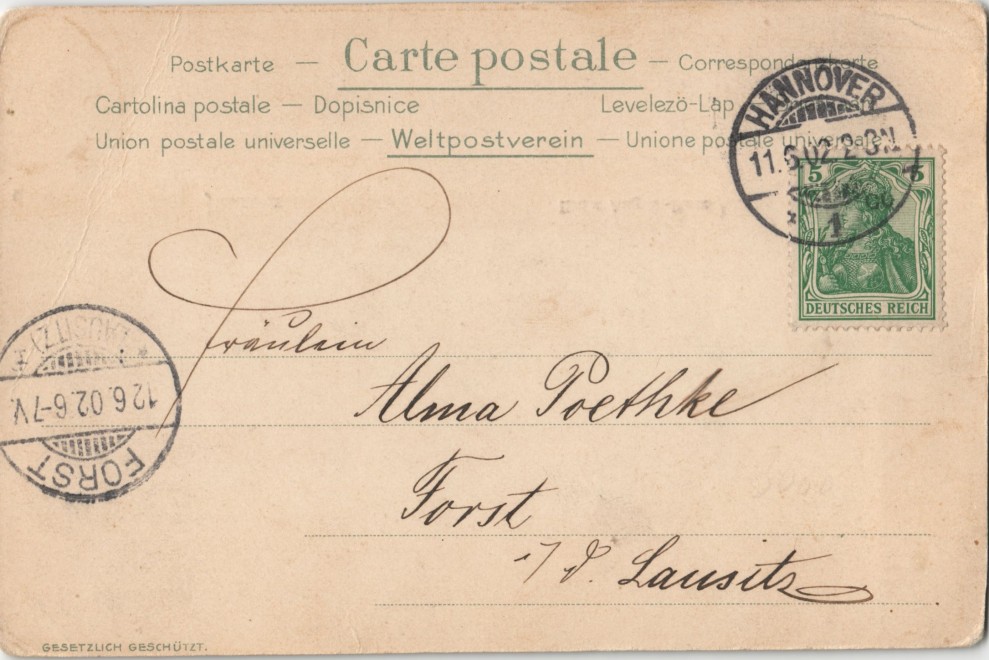 Postkarte — Carte postale — Correspondenzkarte
Cartolina postale — Dopisnice Levelezö-Lap
Union postale universelle — Weltpostverein — Unione postale universale
HANNOVER
11.6.02.2-3N
1
5 5
DEUTSCHES REICH
Fräulein
Alma Poethke
Forst
i/d. Lausitz
FORST
12.6.02.6-7V.
(LAUSITZ)
GESETZLICH GESCHÜTZT.